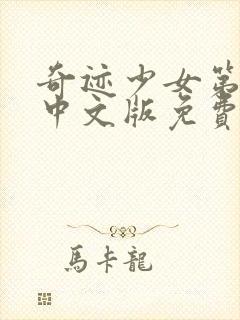 奇迹少女第
中文版免費
馬卡龍